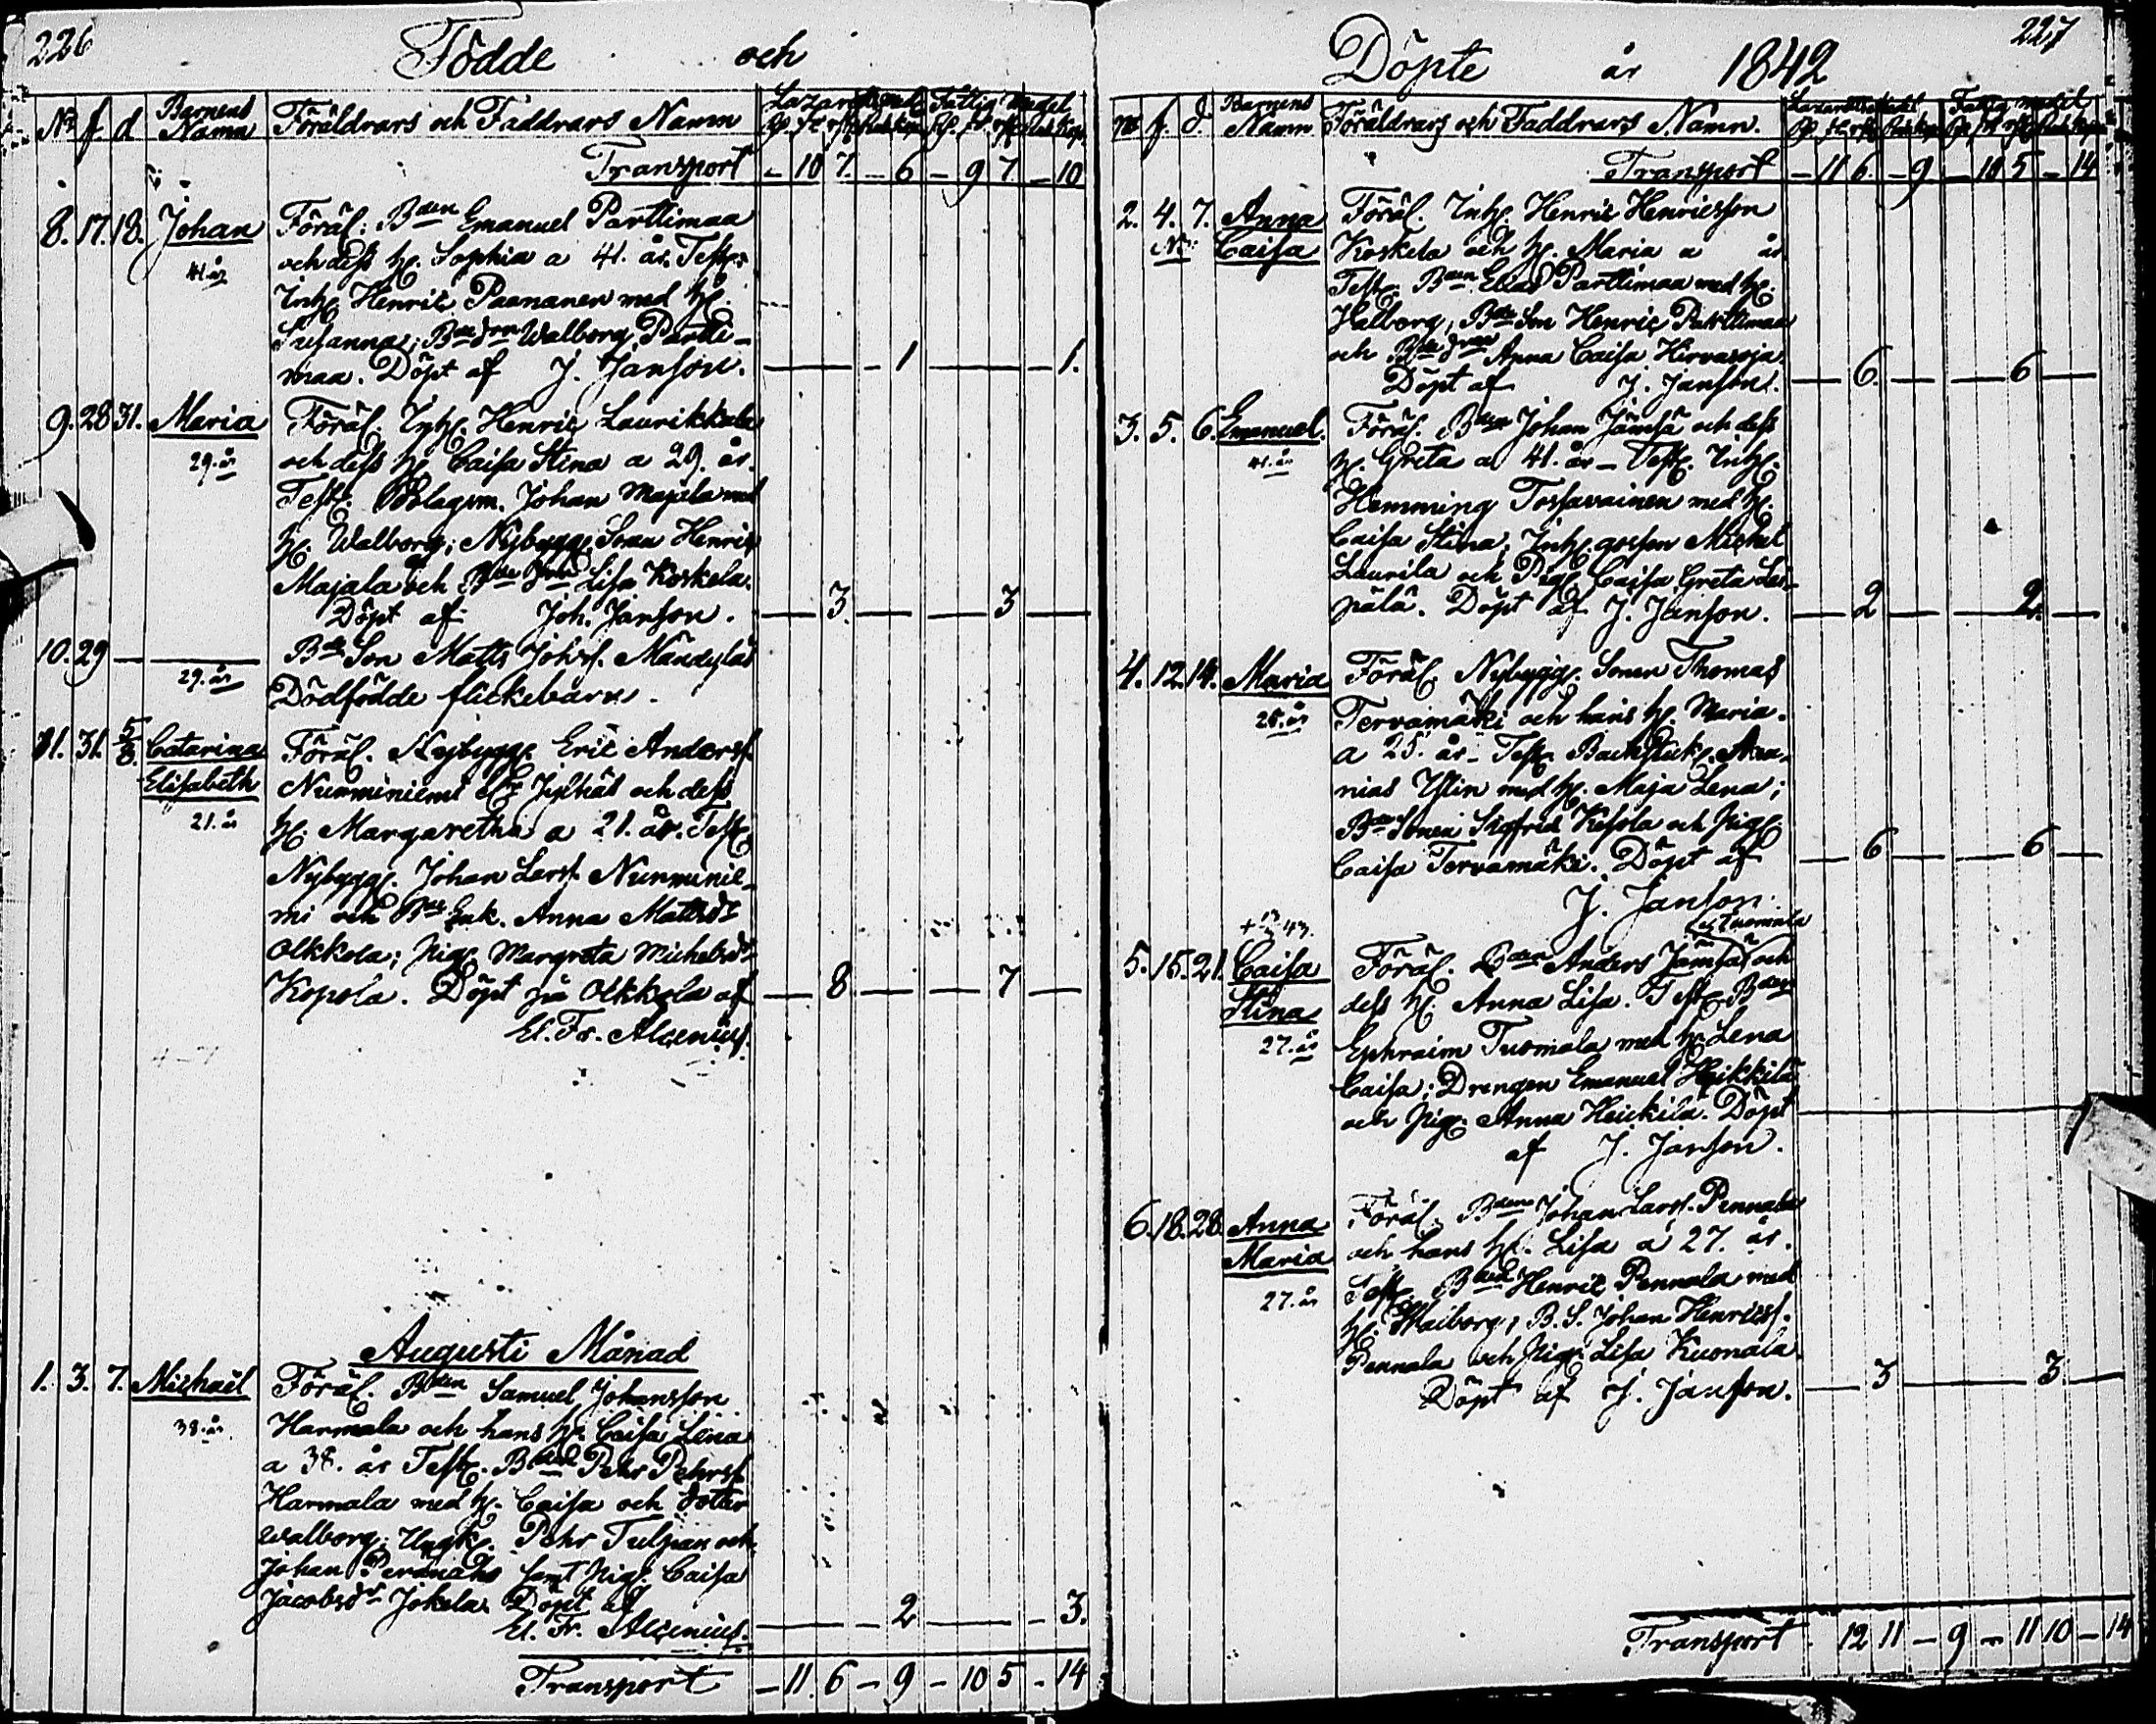 226
Födde och
No f d Barnens Namn Föräldrars och Faddrars Namn Lazaretts medel Fattig medel
Transport - 10 7. - 6 - 9 7. - 10
8. 17. 18. Johan Föräl: Bden Emanuel Parttimaa
41. år och dess h. Sophia a 41. år. Test:
Inh. Henric Paananen med h.
Susanna; Bde Walborg Partti-
maa. Döpt af J. Janson. 1 1.
9. 28 31. Maria Föräl. Inh. Henric Laurikkala
29. år och dess h. Caisa Stina a 29. år.
Test. Bolagsm. Johan Majala med
h. Walborg; Nybygg. Sonen Henric
Majala och Lisa Koskela.
Döpt af Joh. Janson. 3. 3
10. 29 Bde Son Matts Johss. Mandylas
29. år Dödfödde flickebarn.
11. 31. 5/8. Catarina Föräl. Nybygg. Eric Anderss.
Elisabeth Nurminiemi och dess
21. år h. Margaretha a 21. år. Test.
Nybygg. Johan Larss. Nurminie-
mi och Enk. Anna Mattsdr
Olkkola; Pig. Margreta Michelsdr
Kopsla. Döpt på Olkkola af 8 7
El. Fr. Alcenius.
Augusti Månad
1. 3. 7. Michaël Föräl. Bden Samuel Johansson
38. år Harmala och hans h. Caisa Lena
a 38. år Test. Bden Pehr Pehrss.
Harmala med h. Caisa och dotter
Walborg; Ungk. Pehr Tulpan och
Johan samt Pig. Caisa
Jacobsdr Jokela. Döpt af 2 3.
El. Fr. Alcenius.
Transport - 11. 6 - 9 - 10 5 - 14
227
Döpte år 1842
No f. d. Barnens Namn Föräldrars och Faddrars Namn. Lazaretts medel Fattig medel
Transport - 11 6. - 9 - 10 5 - 14
2. 4. 7. Anna Föräl. Inh. Henric Henricsson
Caisa Koskela och h. Maria a år
Test. Bden Elias Parttimaa med h.
Walborg, Bde Son Henric Parttimaa
och Anna Caisa Hirvasoja.
Döpt af J. Janson. 6. 6
3. 5. 6. Emanuel. Föräl. Bden Johan Jämsä och dess
41. år h. Greta a 41. år - Test. Inh.
Hemming Tossavainen med h.
Caisa Stina; Inh. gossen Michel
Laurila och Pig. Caisa Greta Lei-
pälä. Döpt af J. Janson. 2 2.
4. 12. 14. Maria Föräl. Nybygg. Sonen Thomas
25. år Tervamäki och hans h. Maria.
a 25. år - Test. Ana-
nias Yslin med h. Maja Lena;
Bde Sonen Sigfrid Kesola och Pig.
Caisa Tervamäki. Döpt af 6 6
J. Janson.
Tuomala
5. 15. 21. Caisa Föräl. Bden Anders Jämsä och
Stina dess h. Anna Lisa. Test. Bden
27. år Ephraim Tuomala med h. Lena
Caisa; Drengen Emanuel Heikkilä
och Pig. Anna Heickilä. Döpt
af J. Janson.
6. 18. 28. Anna Föräl. Bden Johan Larss. Pennala
Maria och hans h. Lisa a 27. år.
27. år Test. Bden Henric Pennala med
h. Walborg; B. S. Johan Henricss.
Pennala och Pig. Lisa Kuonala.
Döpt af J. Janson. 3 3
Transport - 12 11 - 9 - 11 10 - 14